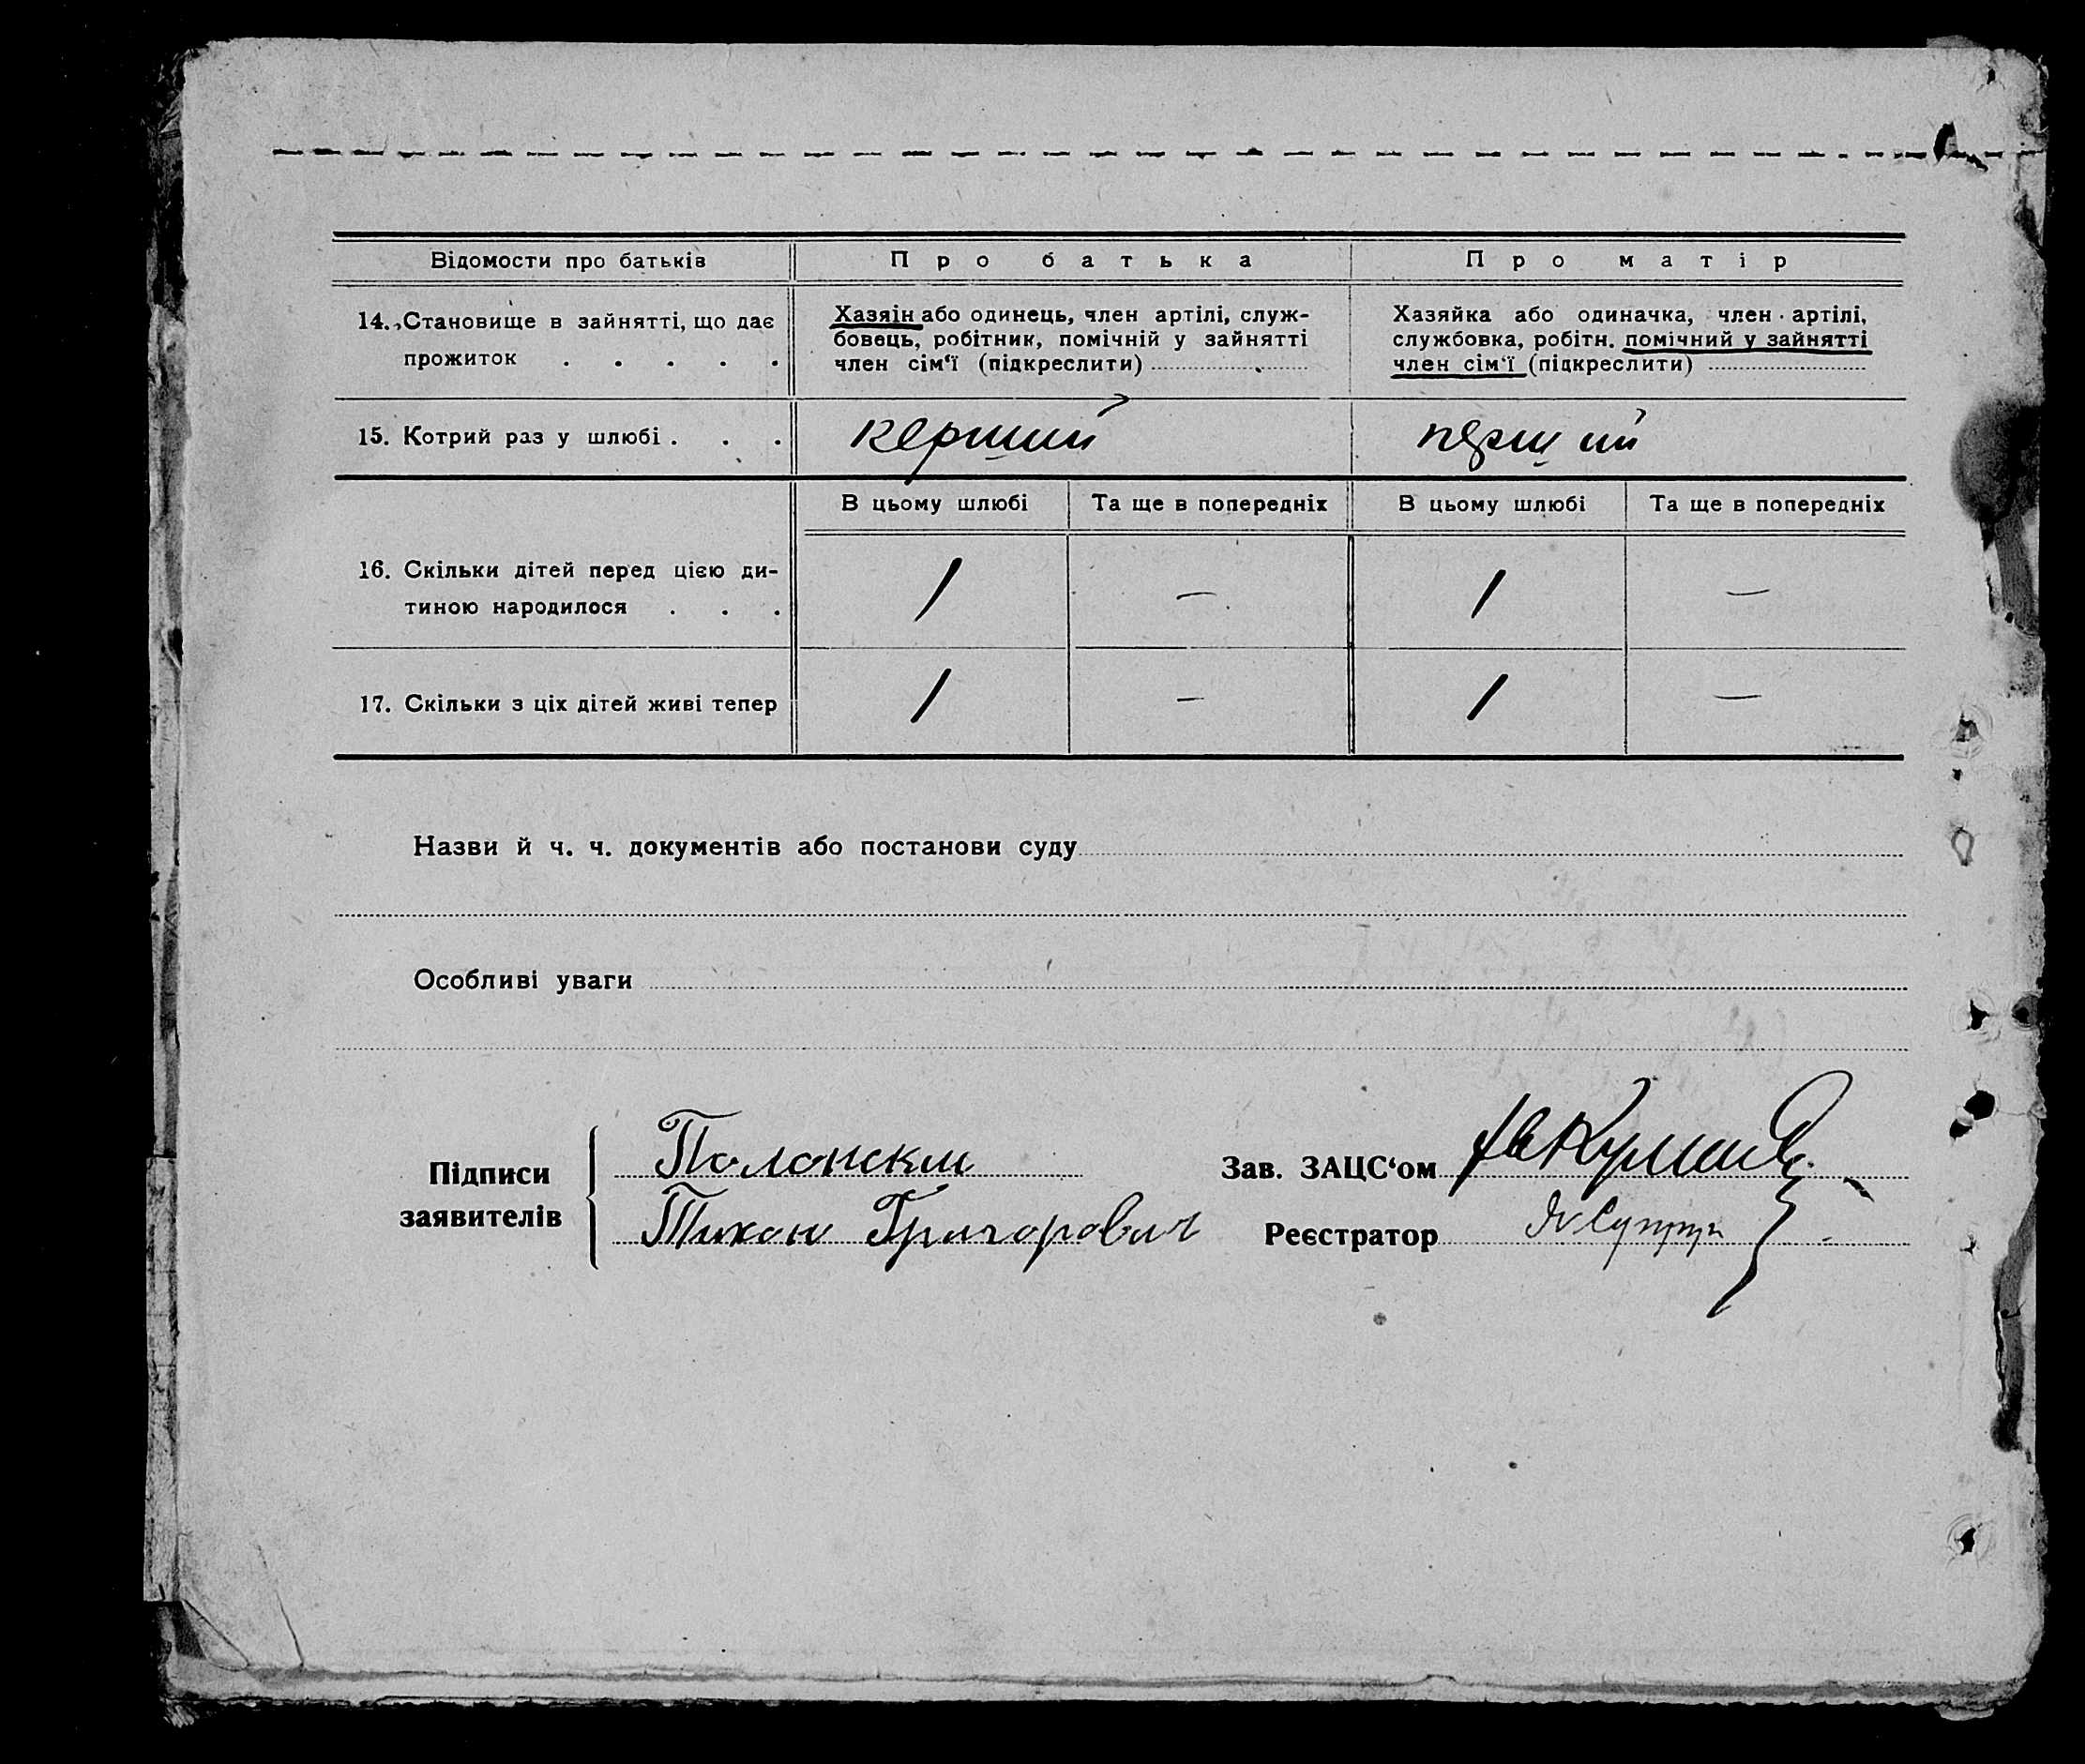 Відомости про батьків
Про батька
Про матір
14. Становище в зайнятті, що дає
прожиток . . . . .
Хазяїн або одинець, член артілі, служ-
бовець, робітник, помічній у зайнятті
член сім‘ї (підкреслити)
Хазяйка або одиначка, член артілі,
службовка, робітн. помічний у зайнятті
член сім‘ї (підкреслити)
15. Котрий раз у шлюбі . . .
перший
перший
В цьому шлюбі
Та ще в попередніх
В цьому шлюбі
Та ще в попередніх
16. Скільки дітей перед цією ди-
тиною народилося . . .
1
—
1
—
17. Скільки з ціх дітей живі тепер
1
—
1
—
Назви й ч. ч. документів або постанови суду
Особливі уваги
Підписи
заявителів
Полонским
Тихон Григорович
Зав. ЗАЦС‘ом
Реєстратор